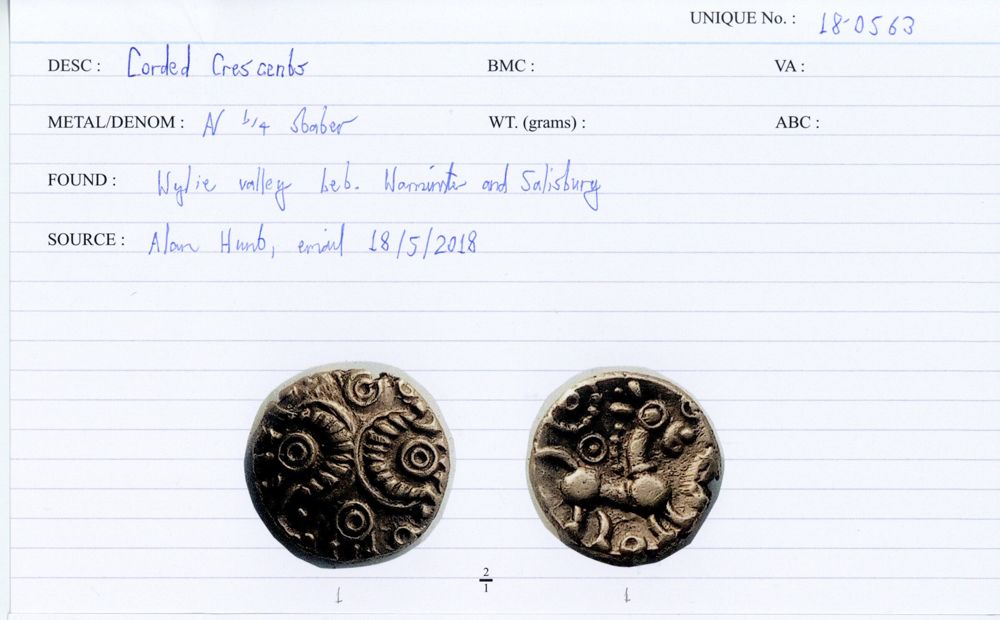 UNIQUE No. : 18-0563
DESC : Corded Crescents BMC : VA :
METAL/DENOM : N 1/4 Stater WT. (grams) : ABC :
FOUND : Wylie valley bet. Warminster and Salisbury
SOURCE : Alan Hunt, email 18/5/2018
2
1
1 1